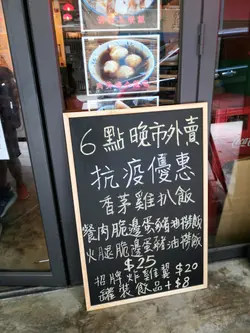 6點晚市外賣
抗疫優惠
香茅雞扒飯
餐肉脆邊蛋豬油撈飯
火腿脆邊蛋豬油撈飯
$25
招牌炸雞翼 $20
罐裝飲品+$8